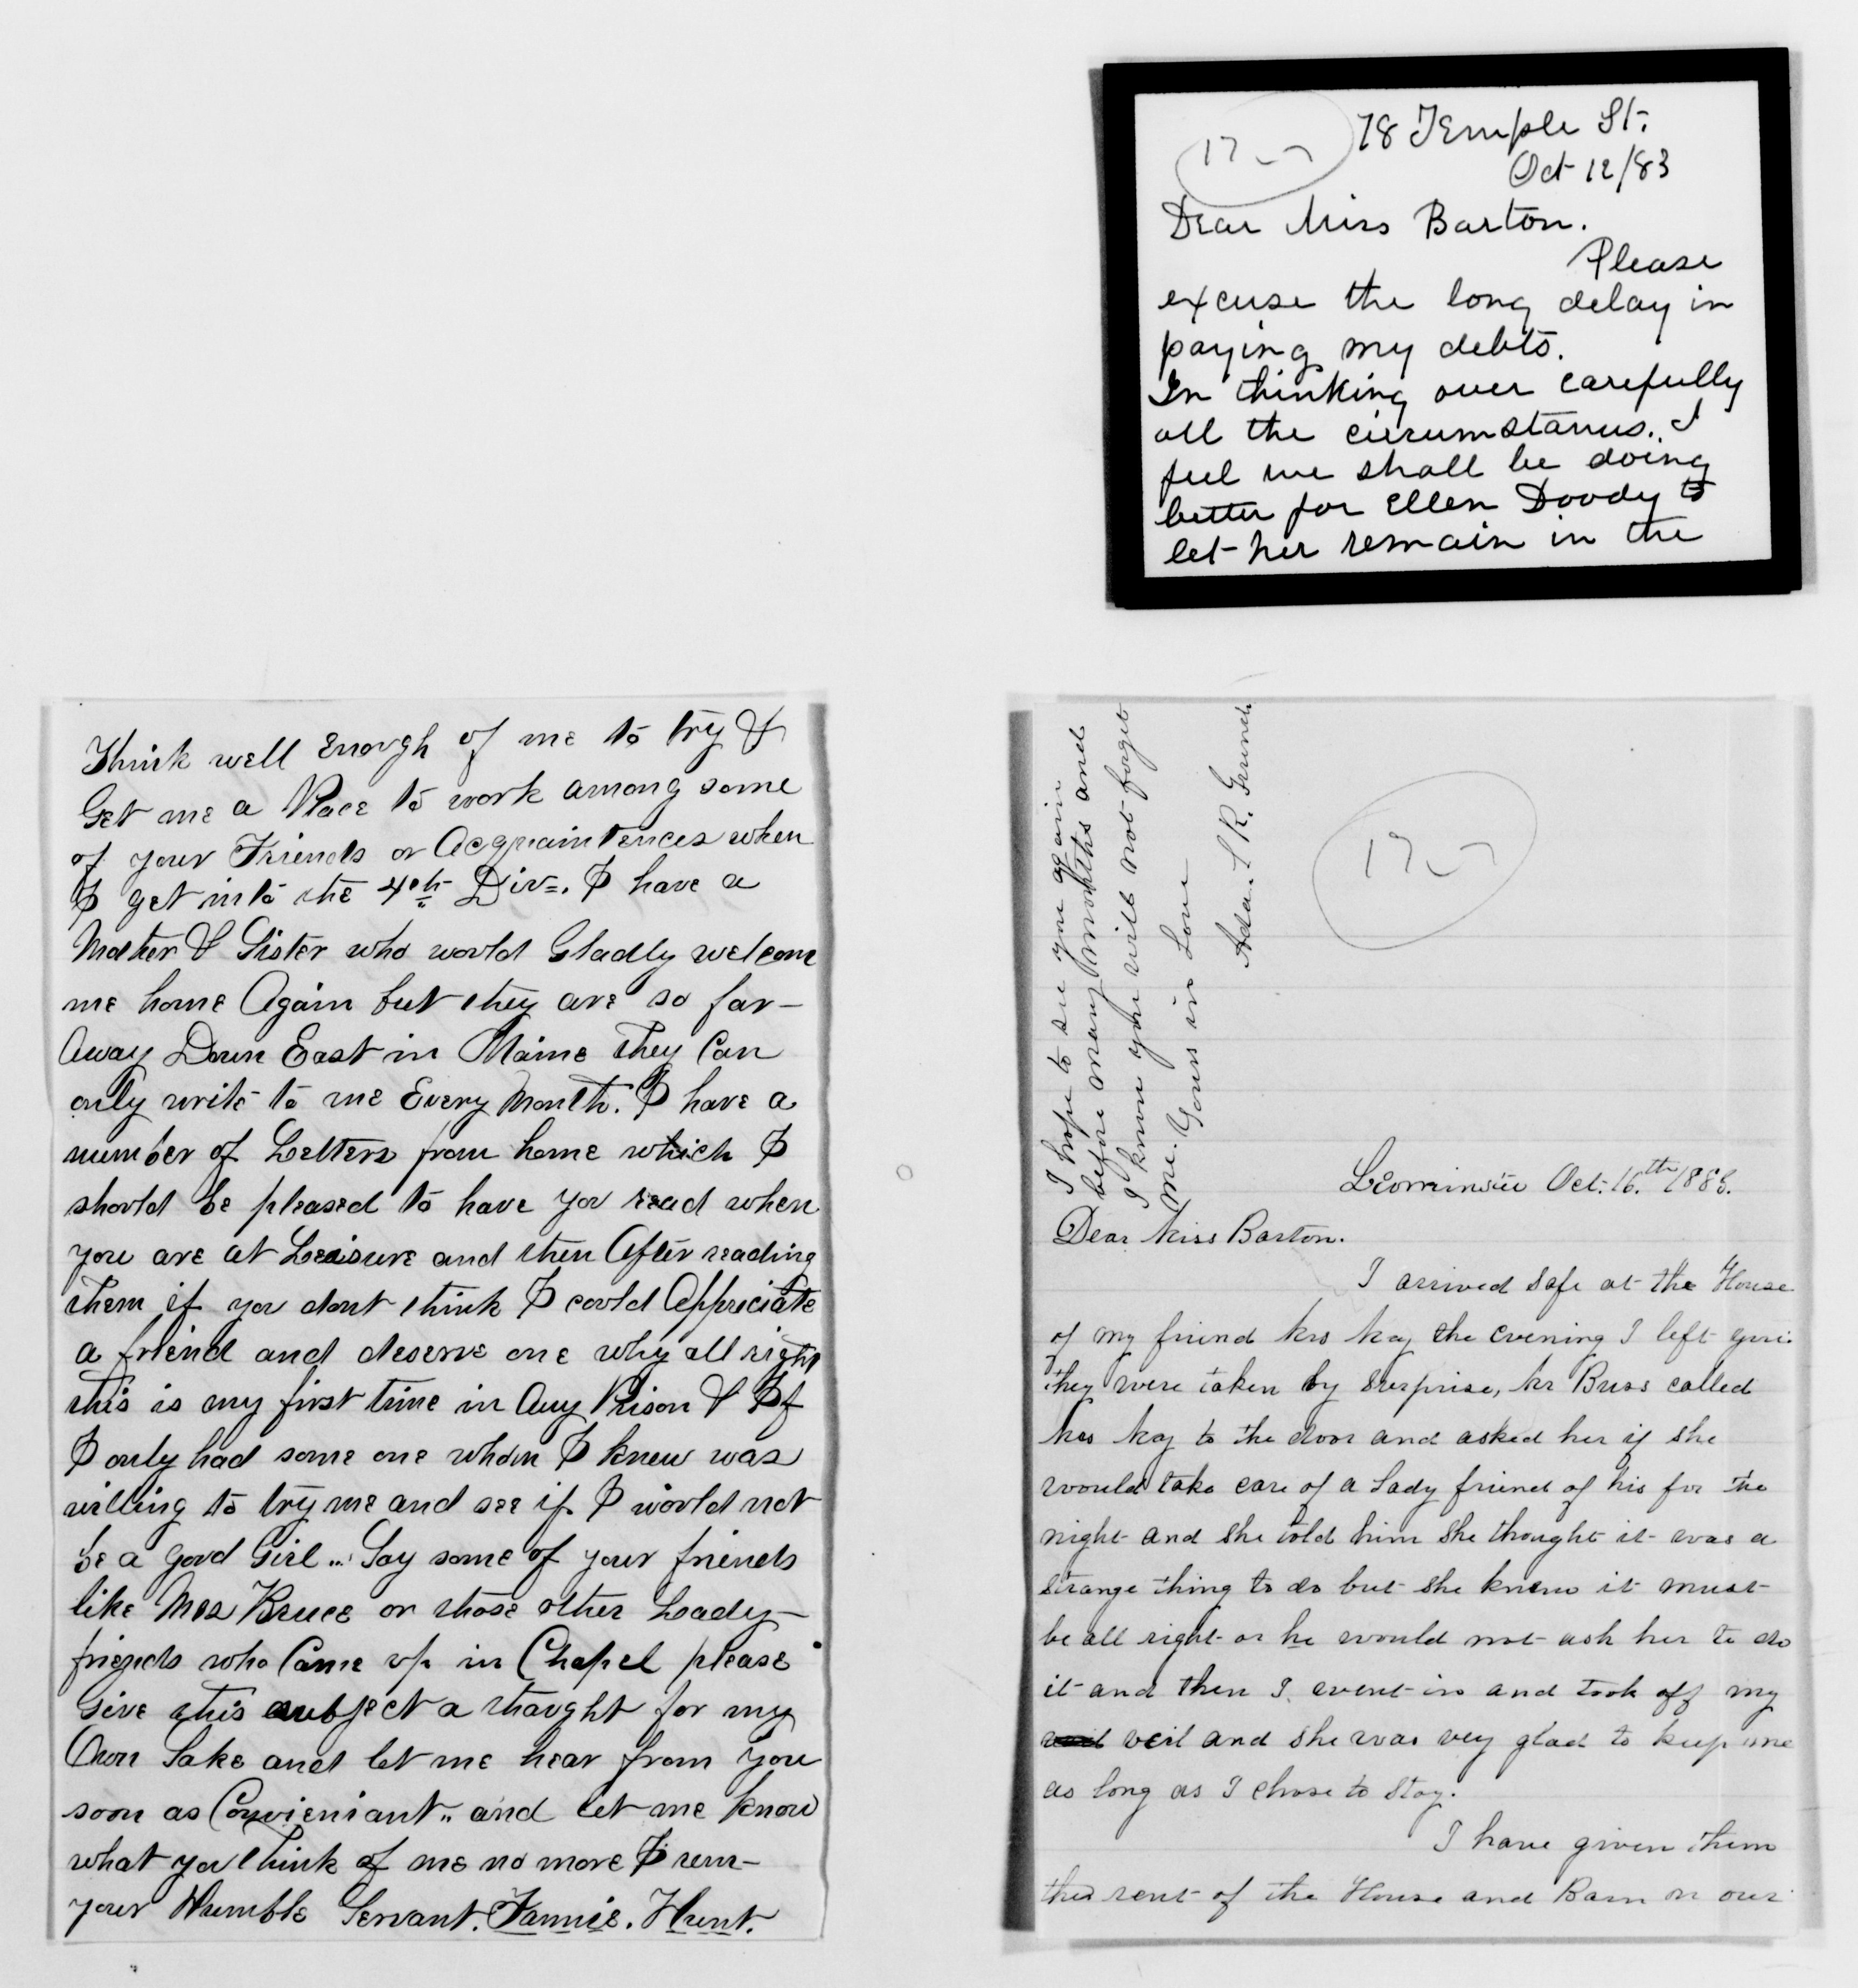 78 Temple St.
Oct 12/83
Dear Miss Barton.
Please
excuse the long delay in
paying my debts.
In thinking over carefully
all the circumstances. I
feel we shall be doing
better for Ellen Doody to
let her remain in the
Think well Enough of me to try &
Get me a Place to work among some
of your Friends or Acquaintences when
I get into the 4th Div=. I have a
Mother & Sister who would Gladly welcom
me home Again but they are so far-
Away Down East in Maine They Can
only write to me Every Month. I have a
number of Letters from home which I
should be pleased to have you read when
you are at Leaisure and then After reading
them if you dont think I could Appriciate
a friend and deserve one why all right
this is my first time in Any Prison & If
I only had some one whom I knew was
willing to try me and see if I would not
be a good Girl... Say some of your friends
like Mrs Bruce or those other Lady-
friends who Came up in Chapel please
Give this subject a thought for my
Own Sake and let me hear from you
soon as Convieniant.. and let me know
what you Think of me no more I rem-
your Humble Servant. Fannie. Hunt.
I hope to see you again
before many months and
I know you will not forget
me. Yours in Love
Ada. L. R.
Leominster Oct. 16.th 1883.
Dear Miss Barton.
I arrived safe at the House
of my friend Mrs May the evening I left you.
they were taken by surprise, Mr Buss called
Mrs May to the door and asked her if she
would take care of a Lady friend of his for the
night and she told him she thought it was a
strange thing to do but she knew it must
be all right or he would not ask her to do
it and then I went in and took off my
veil and she was very glad to keep me
as long as I chose to stay.
I have given them
the rent of the House and Barn on our